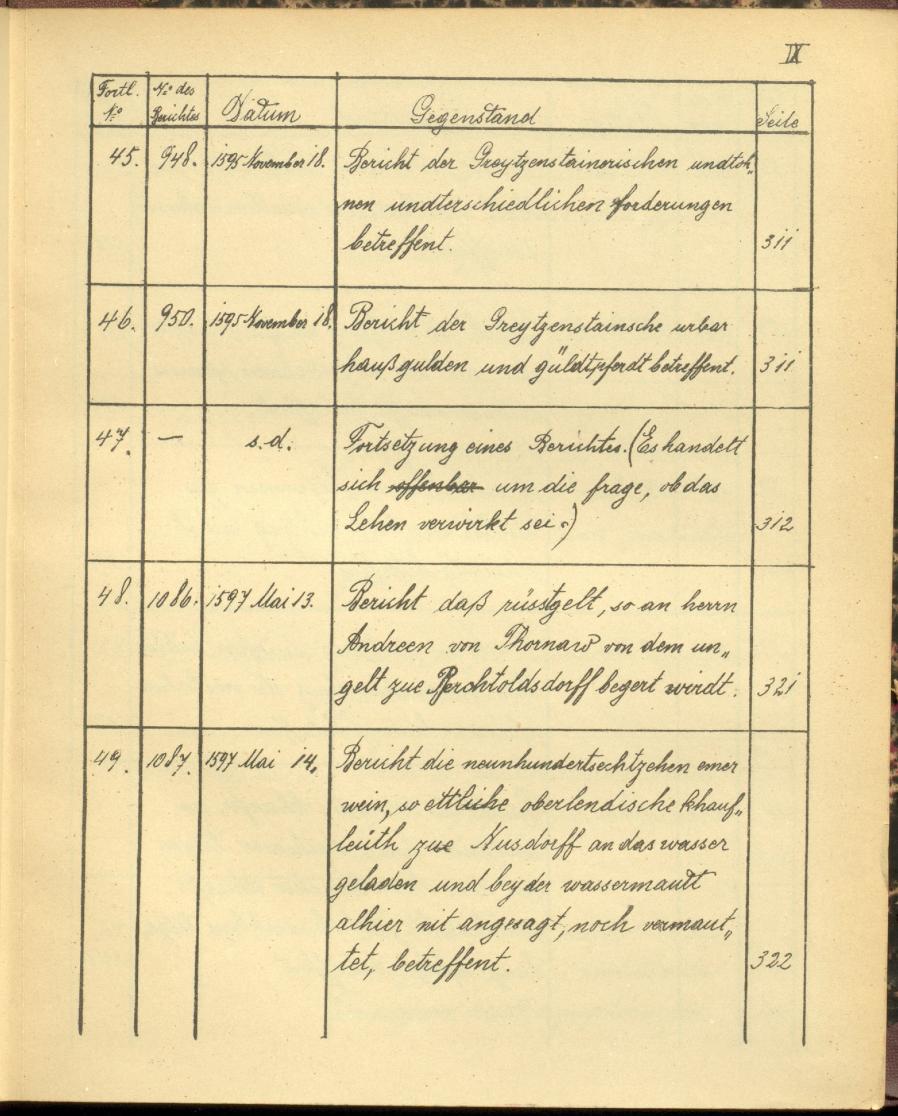 IX
Fortl. No
No des Berichtes
Datum
Gegenstand
Seite
45. 948. 1595 November 18. Bericht der Greytzenstainerischen undtoh„
nen undterschiedlichen forderungen
betreffent. 311
46. 950. 1595 November 18. Bericht der Greytzenstainsche urbar
haußgulden und güldtpferdt betreffent. 311
47. — s.d. Fortsetzung eines Berichtes. (Es handelt
sich offenbar um die frage, ob das
Lehen verwirkt sei.) 312
48. 1086. 1597 Mai 13. Bericht daß rüsstgelt, so an herrn
Andreen von Thornaw von dem un„
gelt zue Perchtoldsdorff begert wirdt. 321
49. 1087. 1597 Mai 14. Bericht die neunhundertsechtzehen emer
wein, so ettliche oberlendische khauf„
leüth zue Nusdorff an das wasser
geladen und bey der wassermautt
alhier nit angesagt, noch vermaut„
tet, betreffent. 322